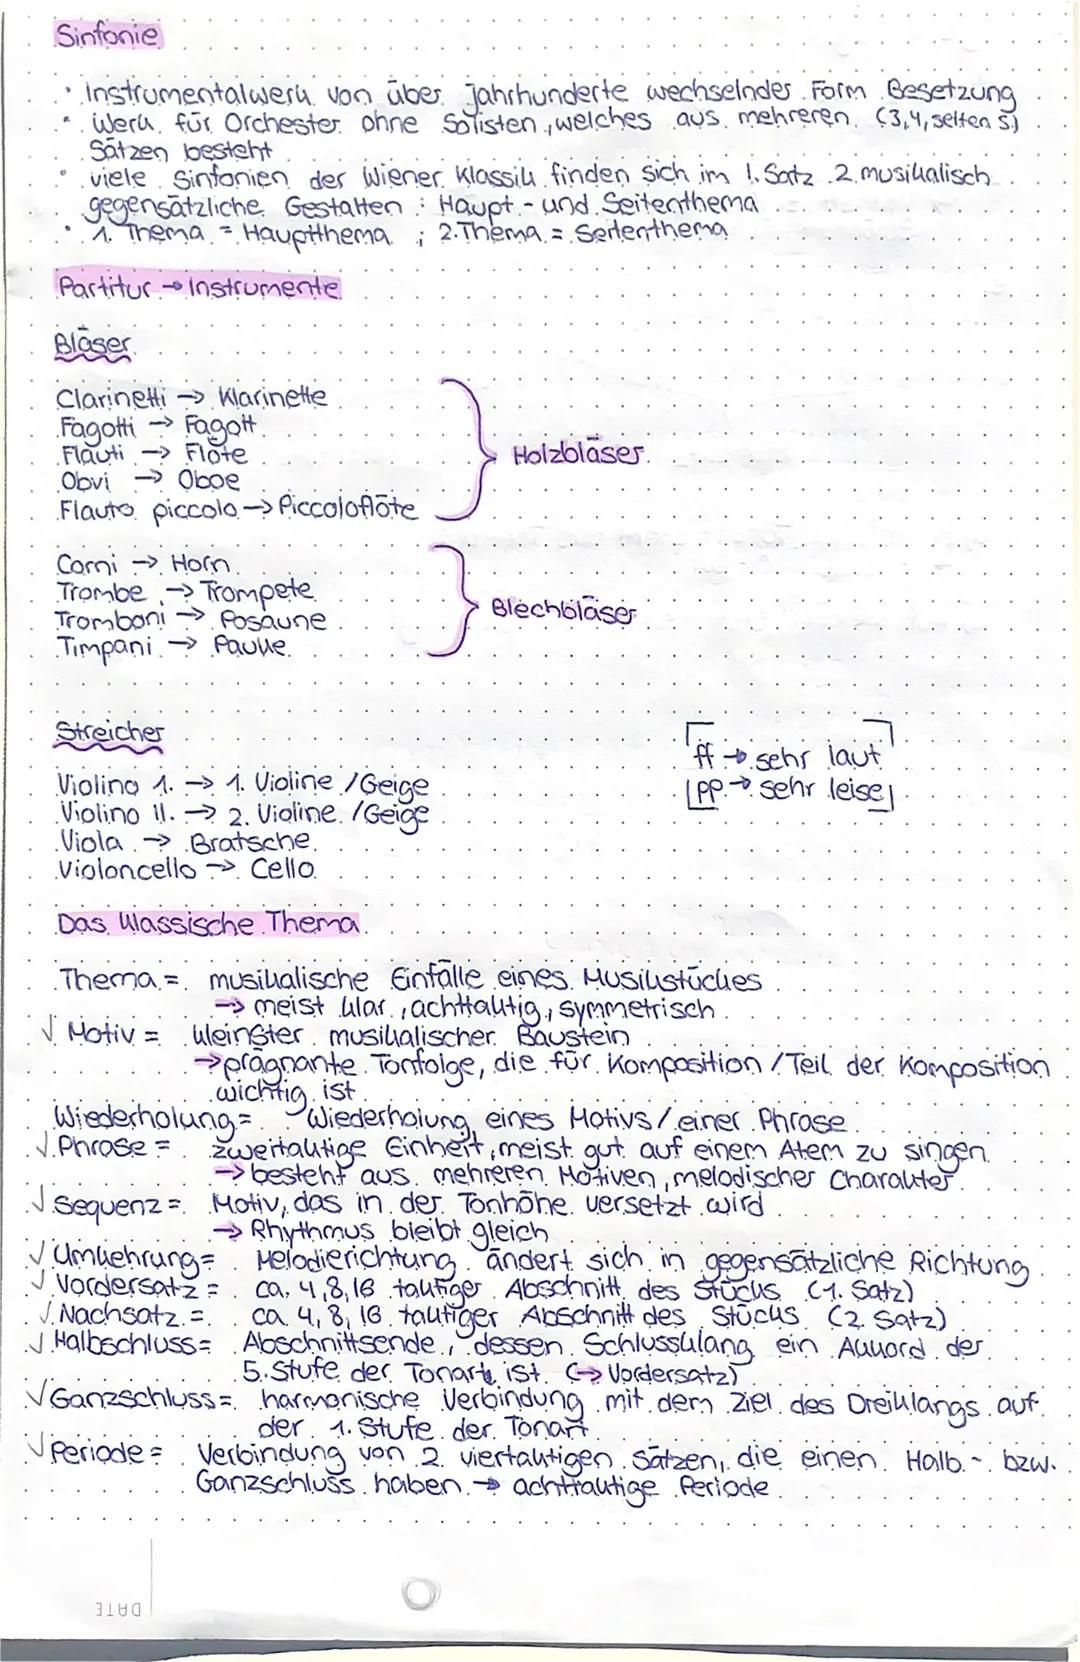 Sinfonie
• Instrumentalwerk von über jahrhunderte wechselndes Form Besetzung
• Werk für Orchester ohne Solisten, welches aus mehreren (3,4, selten 5)
Sätzen besteht
• viele Sinfonien der Wiener Klassik finden sich im 1. Satz 2 musikalisch
gegensätzliche Gestalten: Haupt- und Seitenthema
• 1. Thema = Hauptthema ; 2. Thema = Seitenthema
Partitur → Instrumente
Bläser
Clarinetti → Klarinette
Fagotti → Fagott
Flauti → Flöte
Obvi → Oboe
Flauto piccolo → Piccoloflöte
Holzbläser
Corni → Horn
Trombe → Trompete
Tromboni → Posaune
Timpani → Pauke
Blechbläser
Streicher
Violino 1. → 1. Violine / Geige
Violino II. → 2. Violine / Geige
Viola → Bratsche
Violoncello → Cello
ff → sehr laut
pp → sehr leise
Das klassische Thema
Thema = musikalische Einfälle eines Musikstückes
→ meist klar, achttaktig, symmetrisch
√ Motiv = kleinster musikalischer Baustein
→ prägnante Tonfolge, die für Komposition / Teil der Komposition
wichtig ist
Wiederholung = Wiederholung eines Motivs / einer Phrase
√ Phrase = zweitaktige Einheit, meist gut auf einem Atem zu singen
→ besteht aus mehreren Motiven, melodischer Charakter
√ Sequenz = Motiv, das in der Tonhöhe versetzt wird
→ Rhythmus bleibt gleich
√ Umkehrung = Melodierichtung ändert sich in gegensätzliche Richtung
√ Vordersatz = ca. 4,8,16 taktiger Abschnitt des Stücks (1. Satz)
√ Nachsatz = ca 4, 8, 16 taktiger Abschnitt des Stücks (2. Satz)
√ Halbschluss = Abschnittsende, dessen Schlussklang ein Akkord der
5. Stufe der Tonart ist (→ Vordersatz)
√ Ganzschluss = harmonische Verbindung mit dem Ziel des Dreiklangs auf
der 1. Stufe der Tonart
√ Periode = Verbindung von 2 viertaktigen Sätzen, die einen Halb- bzw.
Ganzschluss haben → achttaktige Periode
DATE